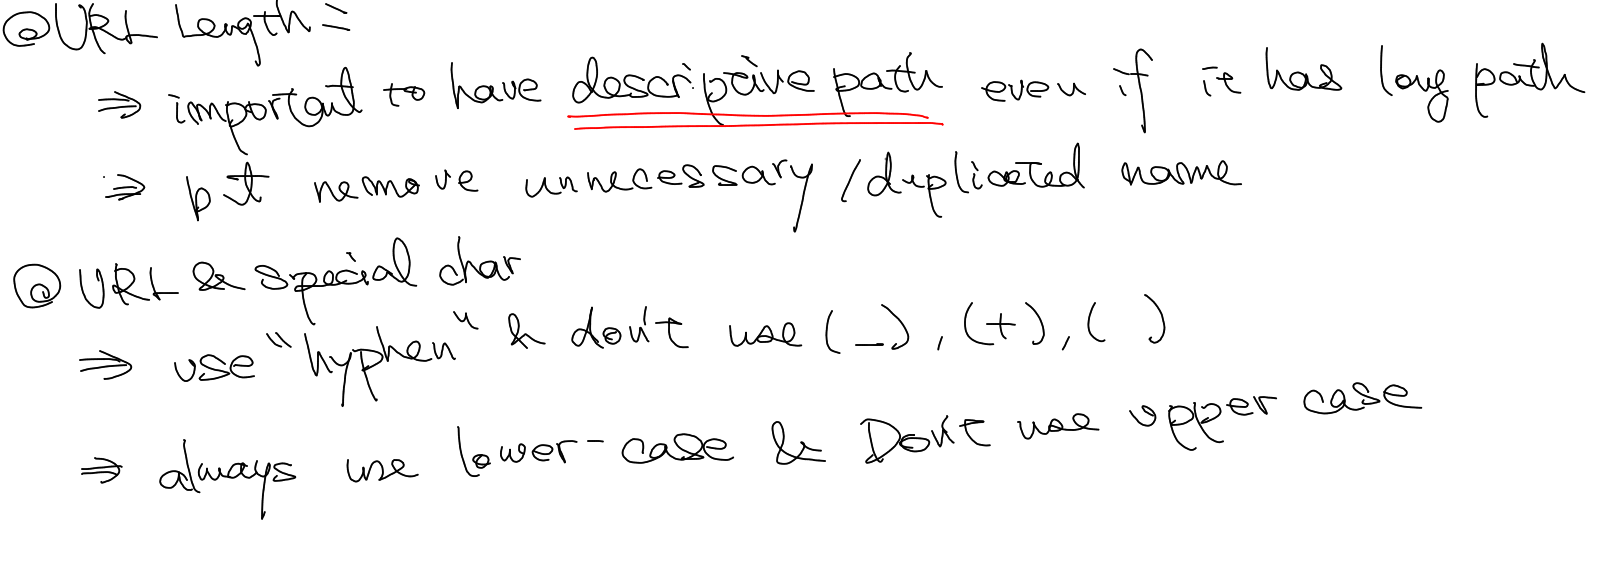 @URL Length =
⇒ important to have descriptive path even if it has long path
⇒ but remove unnecessary / duplicated name
@ URL & special char
⇒ use "hyphen" & don't use (_), (+), ( )
⇒ always use lower-case & Don't use upper case